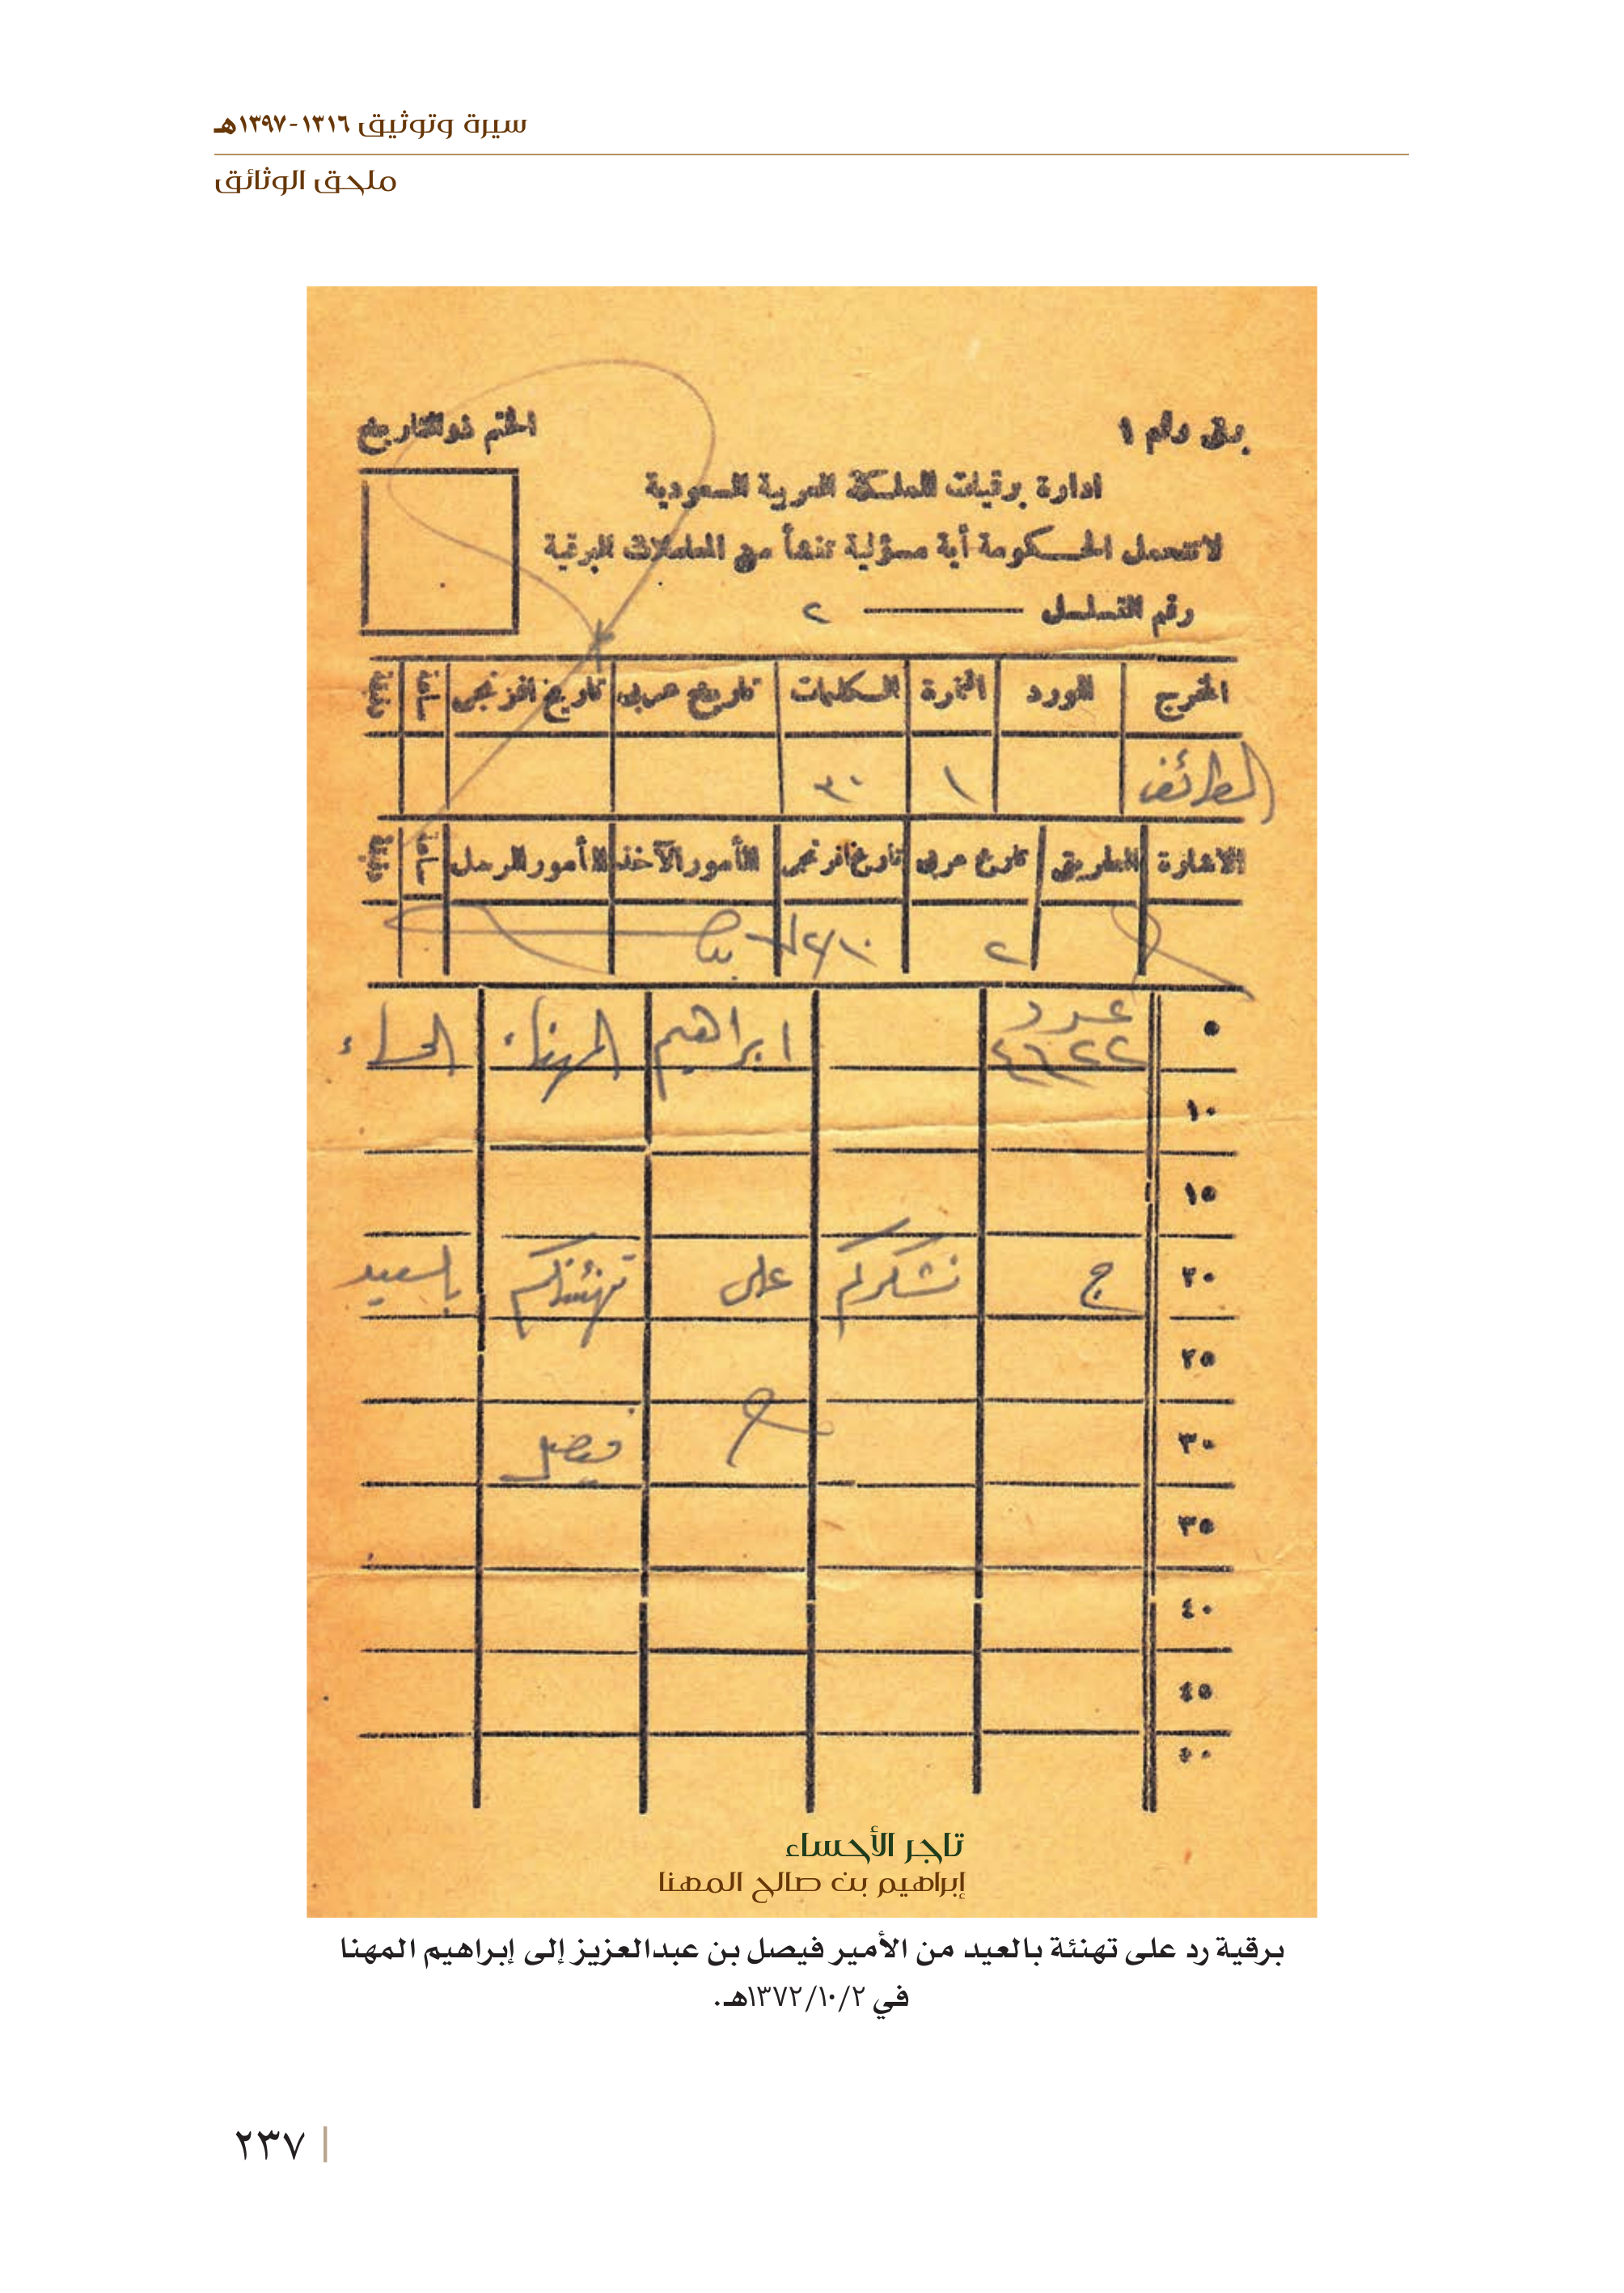 سيرة وتوثيق ١٣١٦-١٣٩٧هـ
ملحق الوثائق
برق رقم ١
الختم ذو التاريخ
ادارة برقيات المملكة العربية السعودية
لا تتحمل الحكومة أية مسؤلية تنشأ من المعاملات البرقية
رقم التسلسل ٢
المخرج المورد النمرة الكلمات تاريخ عربى تاريخ افرنجى ساعة دقيقة
الطائف ١ ٣٠
الاشارة الطريق تاريخ عربى تاريخ افرنجى المأمور الآخذ المأمور المرسل ساعة دقيقة
٢
٥ عدد ابراهيم المهناء الحساء
١٠
١٥
٢٠ ج نشكركم على تهنئتكم بالسعيد
٢٥
٣٠ فيصل
٣٥
٤٠
٤٥
تاجر الأحساء
إبراهيم بن صالح المهنا
برقية رد على تهنئة بالعيد من الأمير فيصل بن عبدالعزيز إلى إبراهيم المهنا
في ١٣٧٢/١٠/٢هـ.
٢٣٧